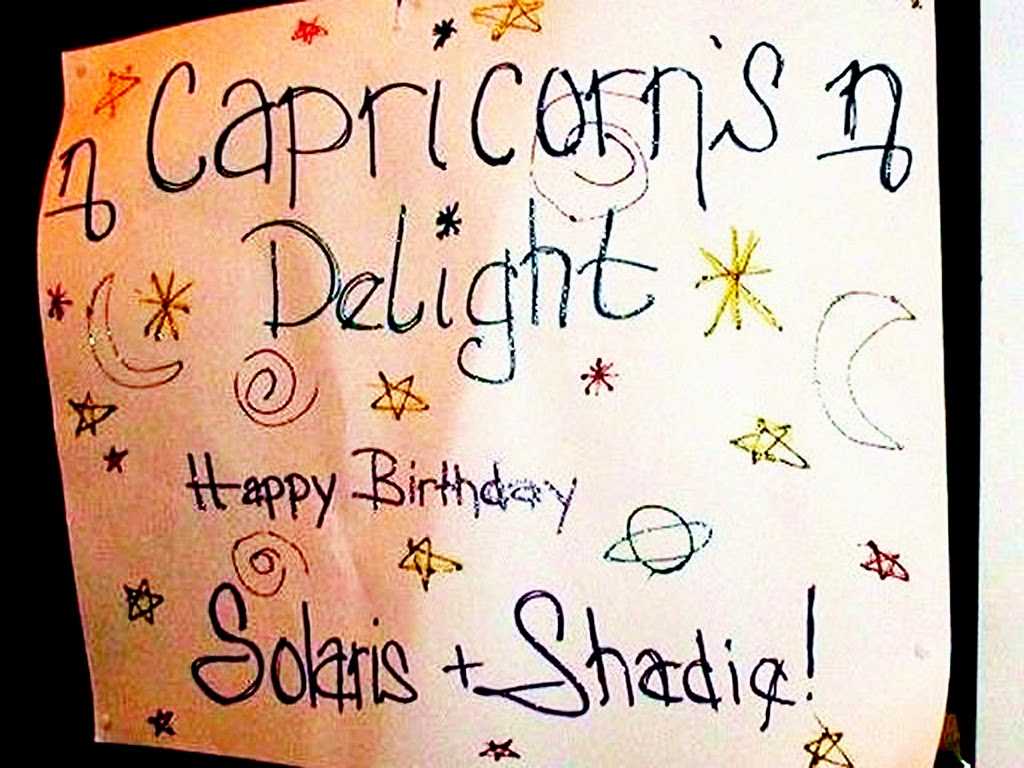 Capricorn's
Delight
Happy Birthday
Solaris + Shadia!